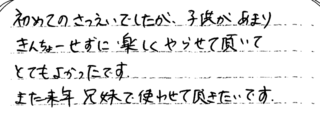 初めてのさつえいでしたが、子供があまり
きんちょーせずに楽しくやらせて頂いて
とてもよかったです。
また来年兄妹で使わせて頂きたいです。